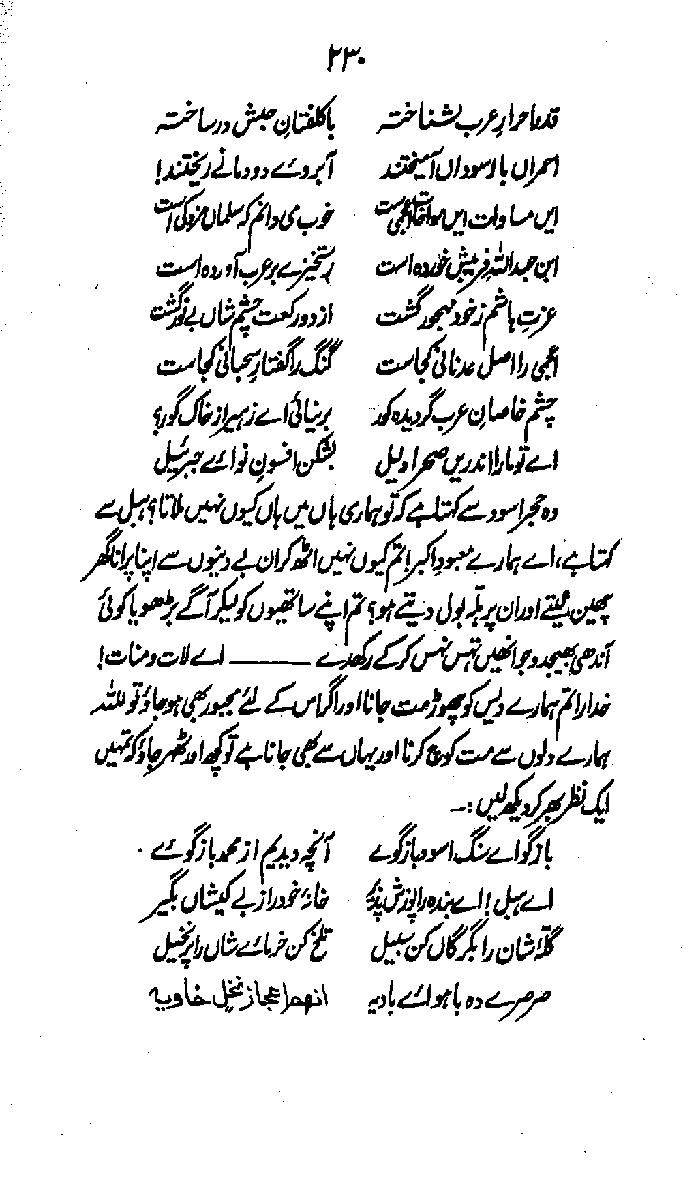 ۲۳۰
قدر احرارِ عرب نشناختہ باکلفتانِ حبش درساختہ
احمراں با اسوداں آمیختند آبروئے دودمانے ریختند!
ایں مساوات ایں مواخات اعجمی است خوب می دانم کہ سلماں مزدکی است
ابن عبداللہ فریبش خوردہ است رستخیزے برعرب آوردہ است
عزتِ ہاشم زخود مہجور گشت از دو رکعت چشمِ شاں بے نور گشت
اعجمی را اصل عدنانی کجاست گنگ را گفتارِ سحبانی کجاست
چشمِ خاصانِ عرب گردیدہ کور بر نیائی اے زہیر از خاکِ گور؟
اے تو مارا اندریں صحرا دلیل بشکن افسونِ نوائے جبرئیل
وہ حجرِ اسود سے کہتا ہے کہ تو ہماری ہاں میں ہاں کیوں نہیں ملاتا؟ ہبل سے
کہتا ہے، اے ہمارے معبودِ اکبر! تم کیوں نہیں اٹھ کر ان بے دینوں سے اپنا پرانا گھر
چھین لیتے اور ان پر ہلّہ بول دیتے ہو؟ تم اپنے ساتھیوں کو لیکر آگے بڑھو یا کوئی
آندھی بھیجدو جو انھیں تہس نہس کرکے رکھدے ——— اے لات و منات!
خدارا تم ہمارے دیس کو چھوڑ مت جانا اور اگر اس کے لئے مجبور بھی ہوجاؤ تو للہ
ہمارے دلوں سے مت کوچ کرنا اور یہاں سے بھی جانا ہے تو کچھ اور ٹھہر جاؤ کہ تمہیں
ایک نظر بھر کر دیکھ لیں :۔
بازگو اے سنگِ اسود بازگوے آنچہ دیدیم از محمد بازگوئے
اے ہبل! اے بندہ را پوزش پذیر خانۂ خود را ز بے کیشاں بگیر
گلۂ شان را بگرگاں کن سبیل تلخ کن خرمائے شاں را بر نخیل
صرصرے دہ با ہوائے بادیہ انھم اعجاز نخل خاویہ